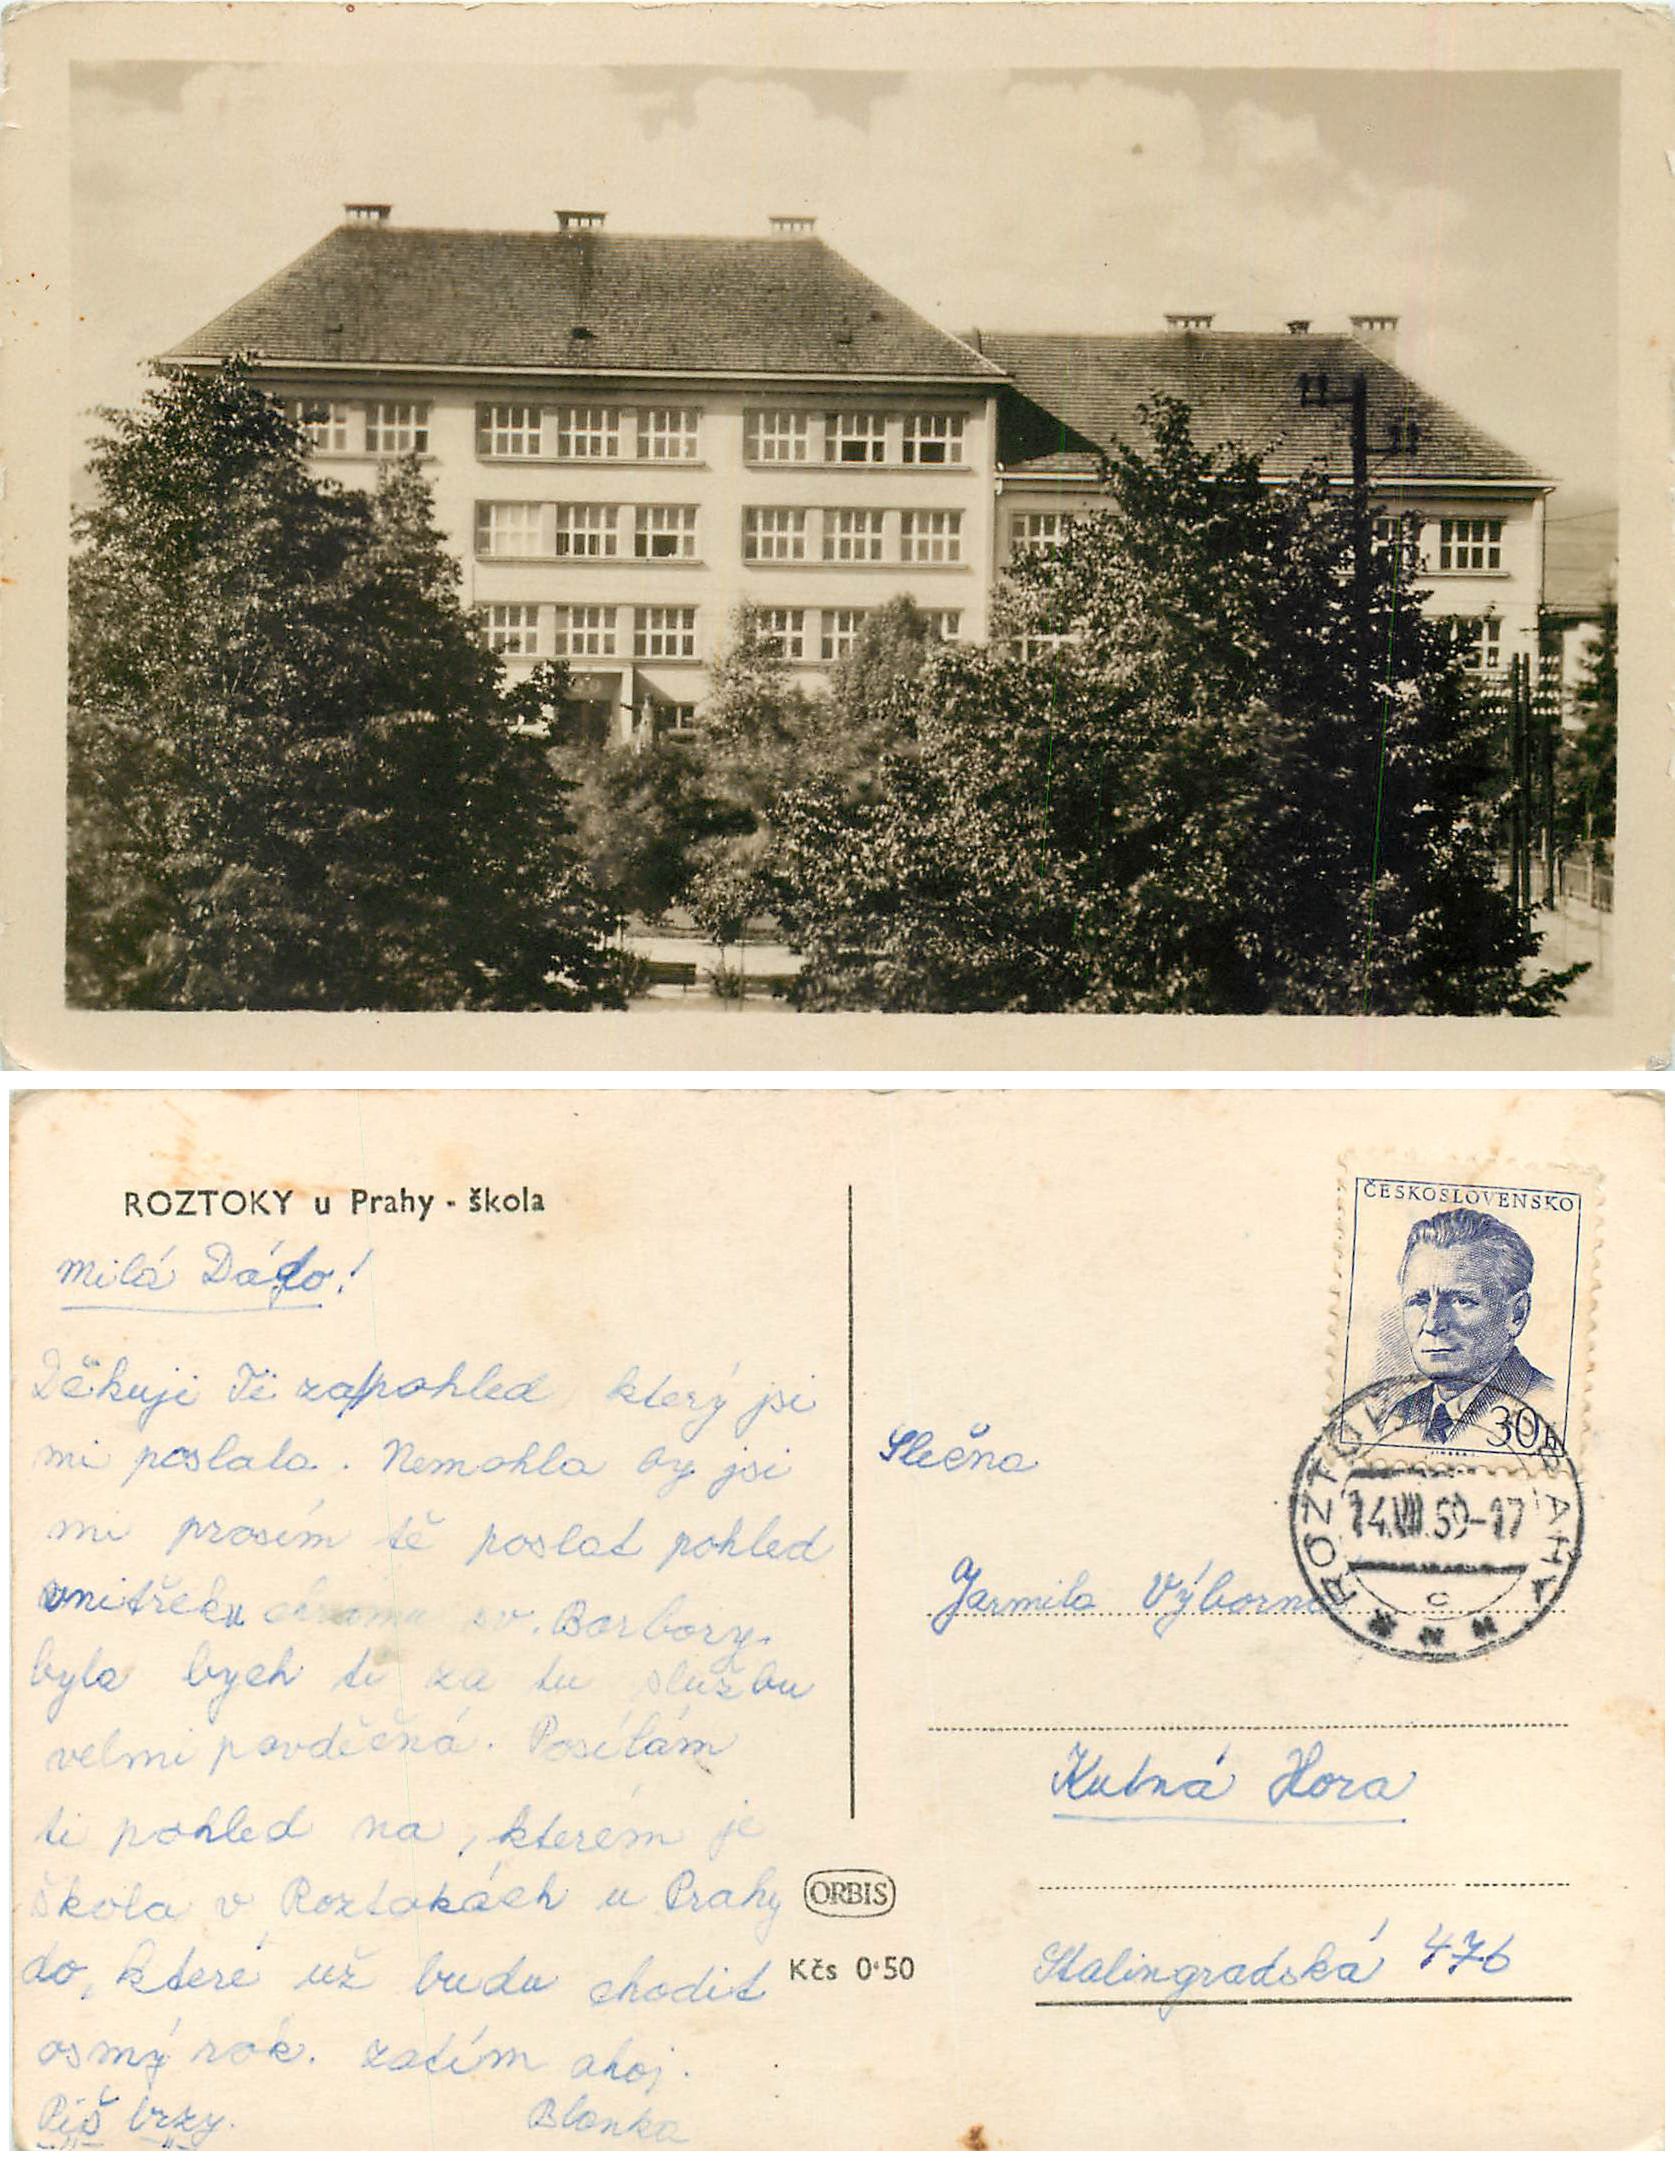 ROZTOKY u Prahy - škola
Milá Dádo!
Děkuji Ti za pohled který jsi
mi poslala. Nemohla by jsi
mi prosím tě poslat pohled
vnitřeku chrámu sv. Barbory.
byla bych ti za tu službu
velmi povděčná. Posílám
ti pohled na, kterém je
škola v Roztokách u Prahy
do, které už budu chodit
osmý rok. zatím ahoj.
Piš brzy. Blanka
ORBIS
Kčs 0·50
ČESKOSLOVENSKO
30h
14.VIII.59-17
C
Slečna
Jarmila Výborná
Kutná Hora
Stalingradská 476